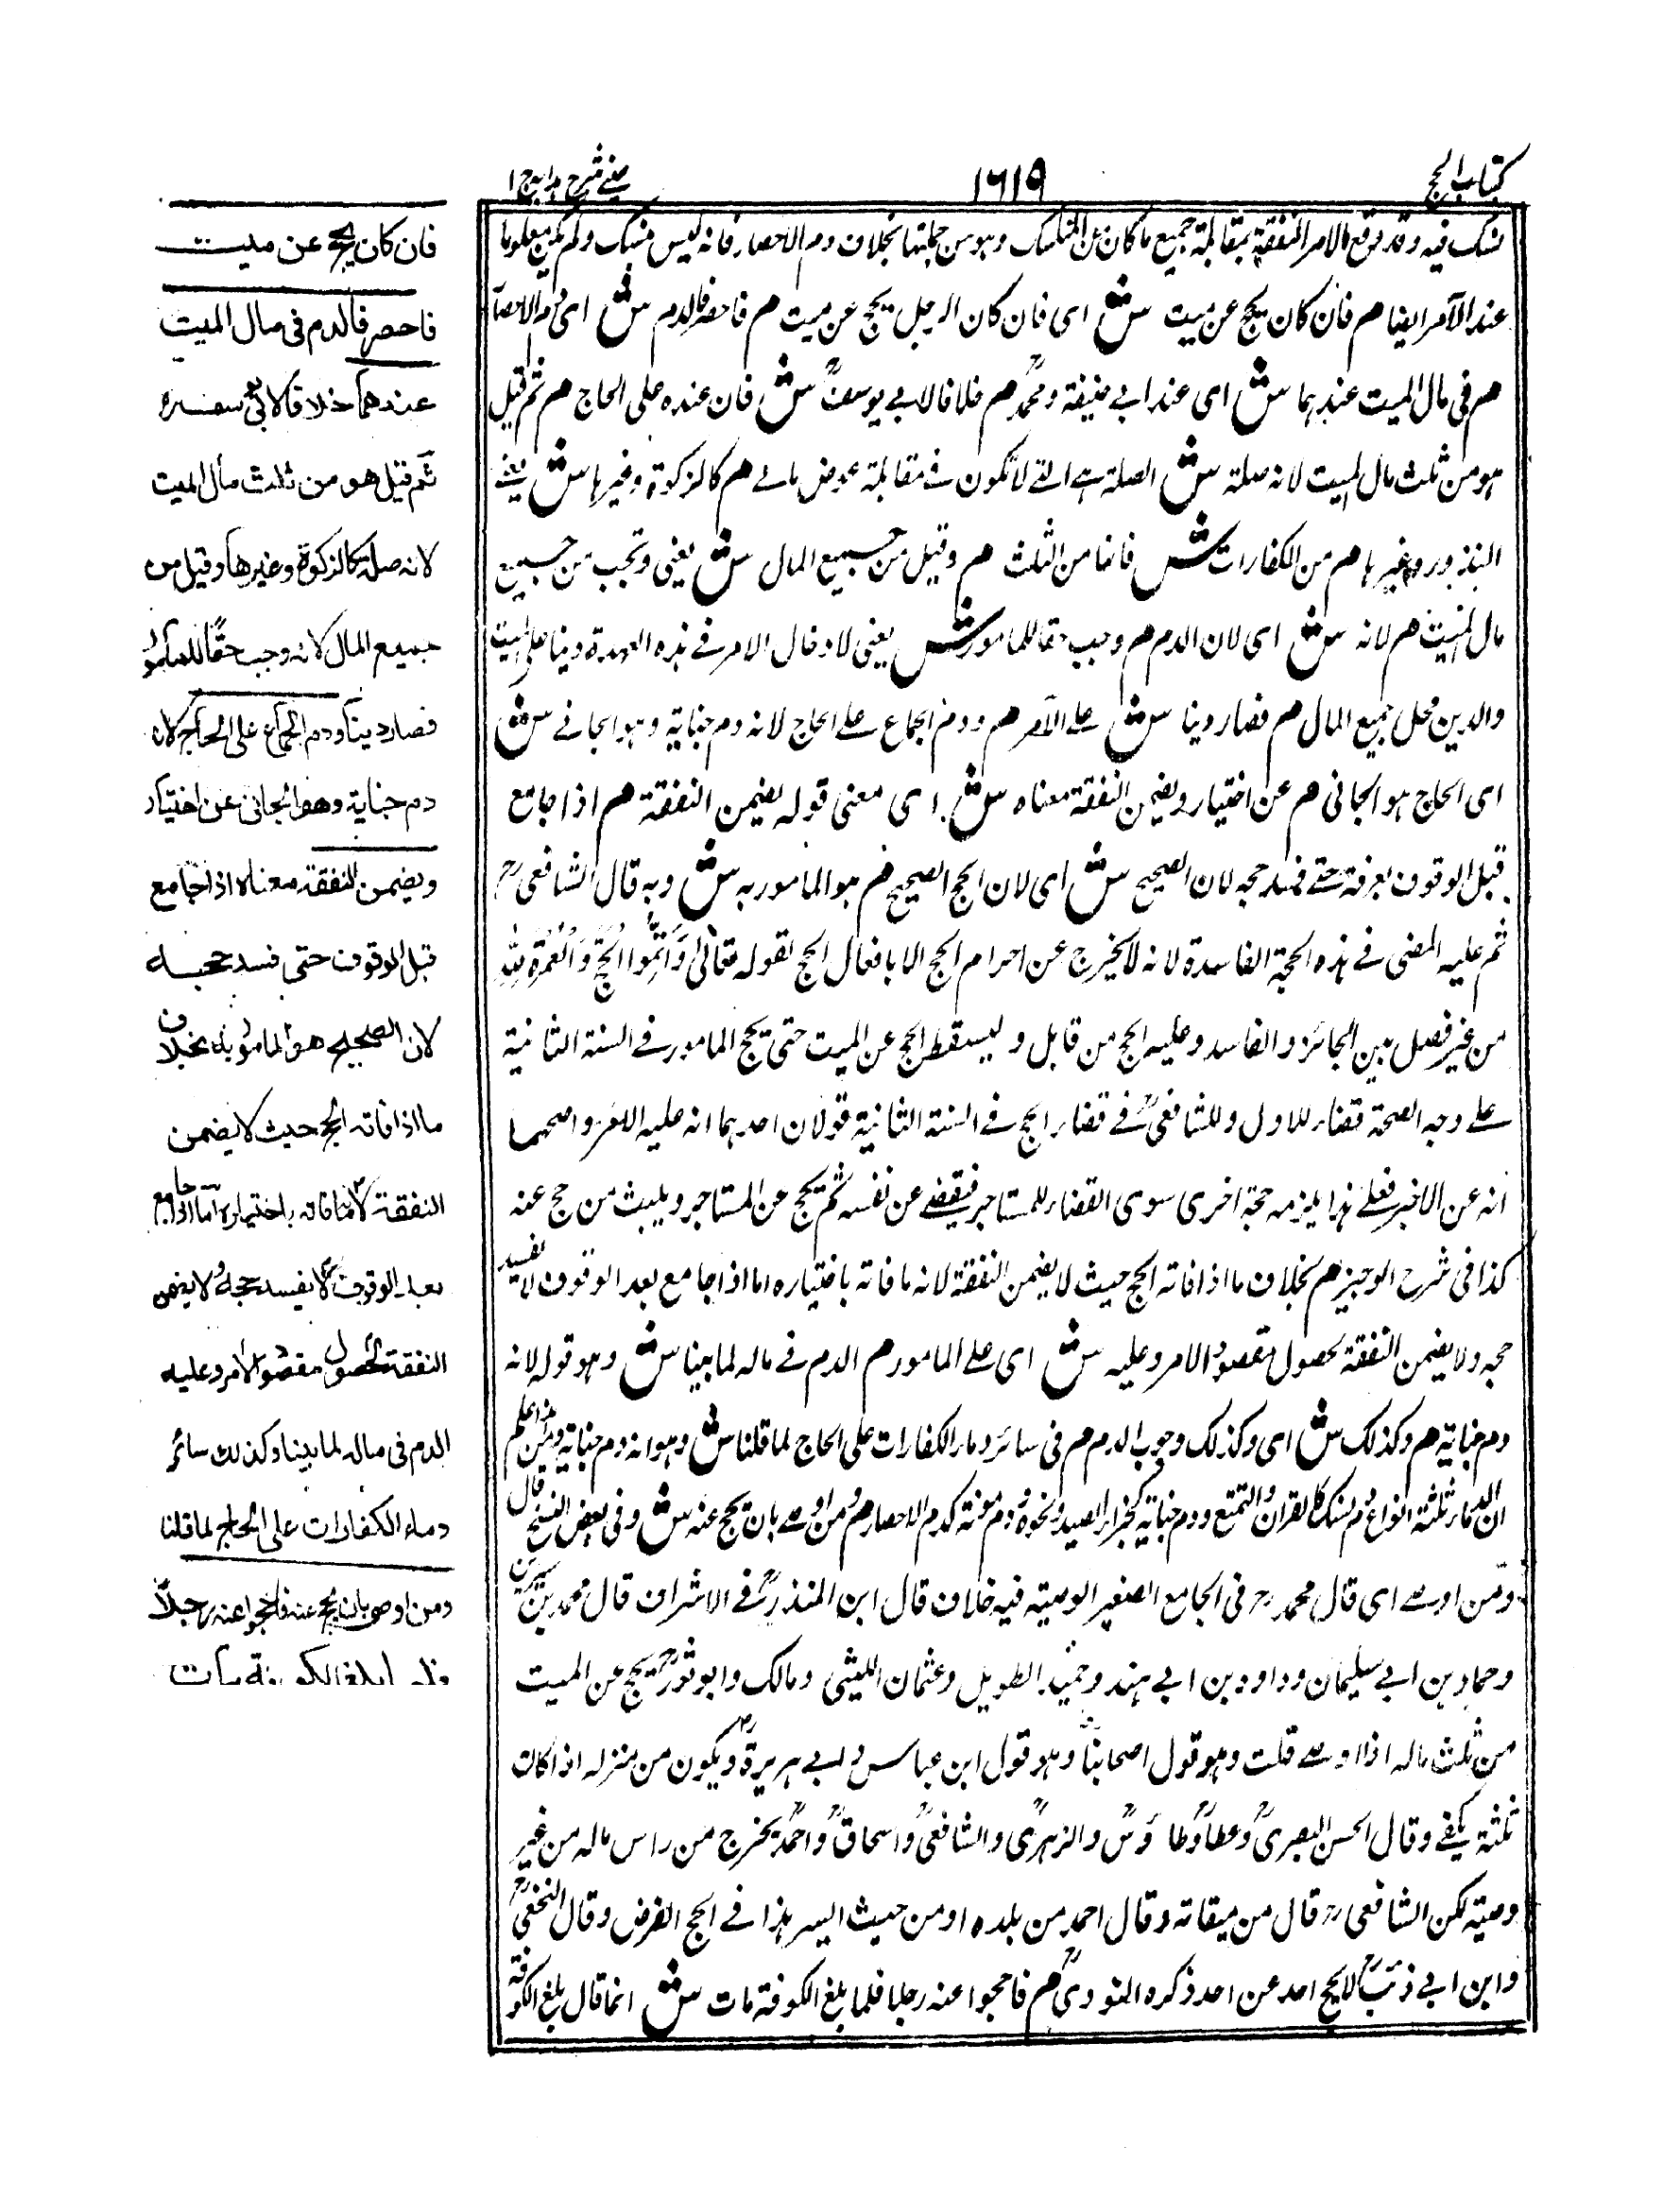 كتاب الحج
١٦١٩
عينى شرح هدايه ج ١
نسك فيه وقد وقع الامر النفقة بمقابلة جميع ما كان من المناسك وهو من جملتها بخلاف دم الاحصار فانه ليس بنسك ولم يكن معلوما
عند الآمر ايضا هم فان كان يحج عن ميت ش اى فان كان الرجل يحج عن ميت هم فاحصر فالدم ش اى دم الاحصار
هم فى مال الميت عندهما ش اى عند ابى حنيفة ومحمدؒ هم خلافا لابى يوسفؒ ش فان عنده على الحاج هم ثم قيل
هو من ثلث مال الميت لانه صلة ش الصلة هى التى لا تكون فى مقابلة عوض مالى هم كالزكوة وغيرها ش يعنى
النذور وغيرها هم من الكفارات ش فانها من الثلث هم وقيل من جميع المال ش يعنى وتجب من جميع
مال الميت هم لانه ش اى لان الدم هم وجب حقا للمامور ش يعنى لادخال الامر فى هذه العهدة دينا على الميت
والدين محل جميع المال هم فصار دينا ش على الآمر هم ودم الجماع على الحاج لانه دم جناية وهو الجانى ش
اى الحاج هو الجانى هم عن اختيار ويضمن النفقة معناه ش اى معنى قوله يضمن النفقة هم اذا جامع
قبل الوقوف بعرفة حتى فسد حجه لان الصحيح ش اى لان الحج الصحيح هم هو المامور به ش وبه قال الشافعىؒ
ثم عليه المضى فى هذه الحجة الفاسدة لانه لا يخرج عن احرام الحج الا بافعال الحج لقوله تعالى وَاَتِمُّوا الْحَجَّ وَالْعُمْرَةَ لِلّٰهِ
من غير فصل بين الجائز والفاسد وعليه الحج من قابل و ليسقط الحج عن الميت حتى يحج المامور فى السنة الثانية
على وجه الصحة قضاء للاول وللشافعىؒ فى قضاء الحج فى السنة الثانية قولان احدهما انه عليه الامر واصحهما
انه عن الاخير فعلى هذا يلزمه حجة اخرى سوى القضاء للمستاجر فيقضى عن نفسه ثم يحج عن المستاجر ويبعث من حج عنه
كذا فى شرح الوجيز هم بخلاف ما اذا فاته الحج حيث لا يضمن النفقة لانه ما فاته باختياره اما اذا جامع بعد الوقوف لا يفسد
حجه ولا يضمن النفقة لحصول مقصود الامر وعليه ش اى على المامور هم الدم فى ماله لما بينا ش وهو قوله لانه
دم جناية هم وكذلك ش اى وكذلك وجوب الدم هم فى سائر دماء الكفارات على الحاج لما قلنا ش وهو انه دم جناية واعلم
ان الدماء ثلثة انواع دم نسك كالقران والتمتع ودم جناية كجزاء الصيد ونحوه ودم مؤنة كدم الاحصار هم ومن اوصى بان يحج عنه ش وفى بعض النسخ قال
ومن اوصى اى قال محمدؒ فى الجامع الصغير الوصية فيه خلاف قال ابن المنذرؒ فى الاشراف قال محمد بن سيرين
وحماد بن ابى سليمان وداود بن ابى هند وحميد الطويل وعثمان الليثى ومالك وابو ثورؒ يحج عن الميت
من ثلث ماله اذا اوصى قلت وهو قول اصحابنا وهو قول ابن عباس وابى هريرةؓ ويكون من منزله اذا كان
ثلثه يكفى وقال الحسن البصرىؒ وعطاؒ وطاوسؒ والزهرىؒ والشافعىؒ واسحاقؒ واحمدؒ يخرج من راس ماله من غير
وصية لكن الشافعىؒ قال من ميقاته وقال احمد من بلده او من حيث ايسر هذا فى الحج الفرض وقال النخعىؒ
وابن ابى ذئبؒ لا يحج احد عن احد ذكره النووىؒ هم فاحجوا عنه رجلا فلما بلغ الكوفة مات ش انما قال بلغ الكوفة
فان كان يحج عن ميت
فاحصر فالدم فى مال الميت
عندهما خلافا لابى يوسفؒ
ثم قيل هو من ثلث مال الميت
لانه صلة كالزكوة وغيرها وقيل من
جميع المال لانه وجب حقًا للمامور
فصار دينًا ودم الجماع على الحاج لانه
دم جناية وهو الجانى عن اختيار
ويضمن النفقة معناه اذا جامع
قبل الوقوف حتى فسد حجه
لان الصحيح هو المامور به بخلاف
ما اذا فاته الحج حيث لا يضمن
النفقة لانه ما فاته باختياره اما اذا جامع
بعد الوقوف لا يفسد حجه ولا يضمن
النفقة لحصول مقصود الامر وعليه
الدم فى ماله لما بينا وكذلك سائر
دماء الكفارات على الحاج لما قلنا
ومن اوصى بان يحج عنه فاحجوا عنه رجلاً
فلما بلغ الكوفة مات